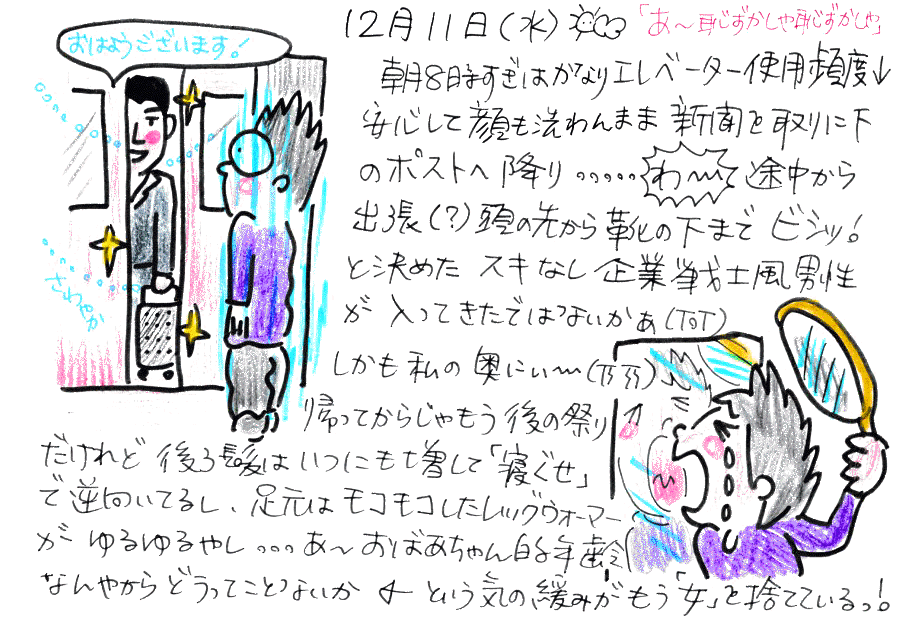 12月11日(水) 「あ〜恥ずかしや恥ずかしや」
おはようございます!
朝8時すぎはかなりエレベーター使用頻度↓
安心して顔も洗わんまま新聞を取りに下
のポストへ降り。。。。。わ〜っ途中から
出張(?)頭の先から靴の下までビシッ!
と決めたスキなし企業戦士風男性
が入ってきたではないかぁ(ToT)
さわやか
しかも私の奥にぃ〜(TT TT)
帰ってからじゃもう後の祭り
だけれど後ろ髪はいつにも増して「寝ぐせ」
で逆向いてるし、足元はモコモコしたレッグウォーマー
がゆるゆるやし。。。あ〜おばあちゃん的年齢
なんやからどうってことないか ← という気の緩みがもう「女」を捨てているっ!